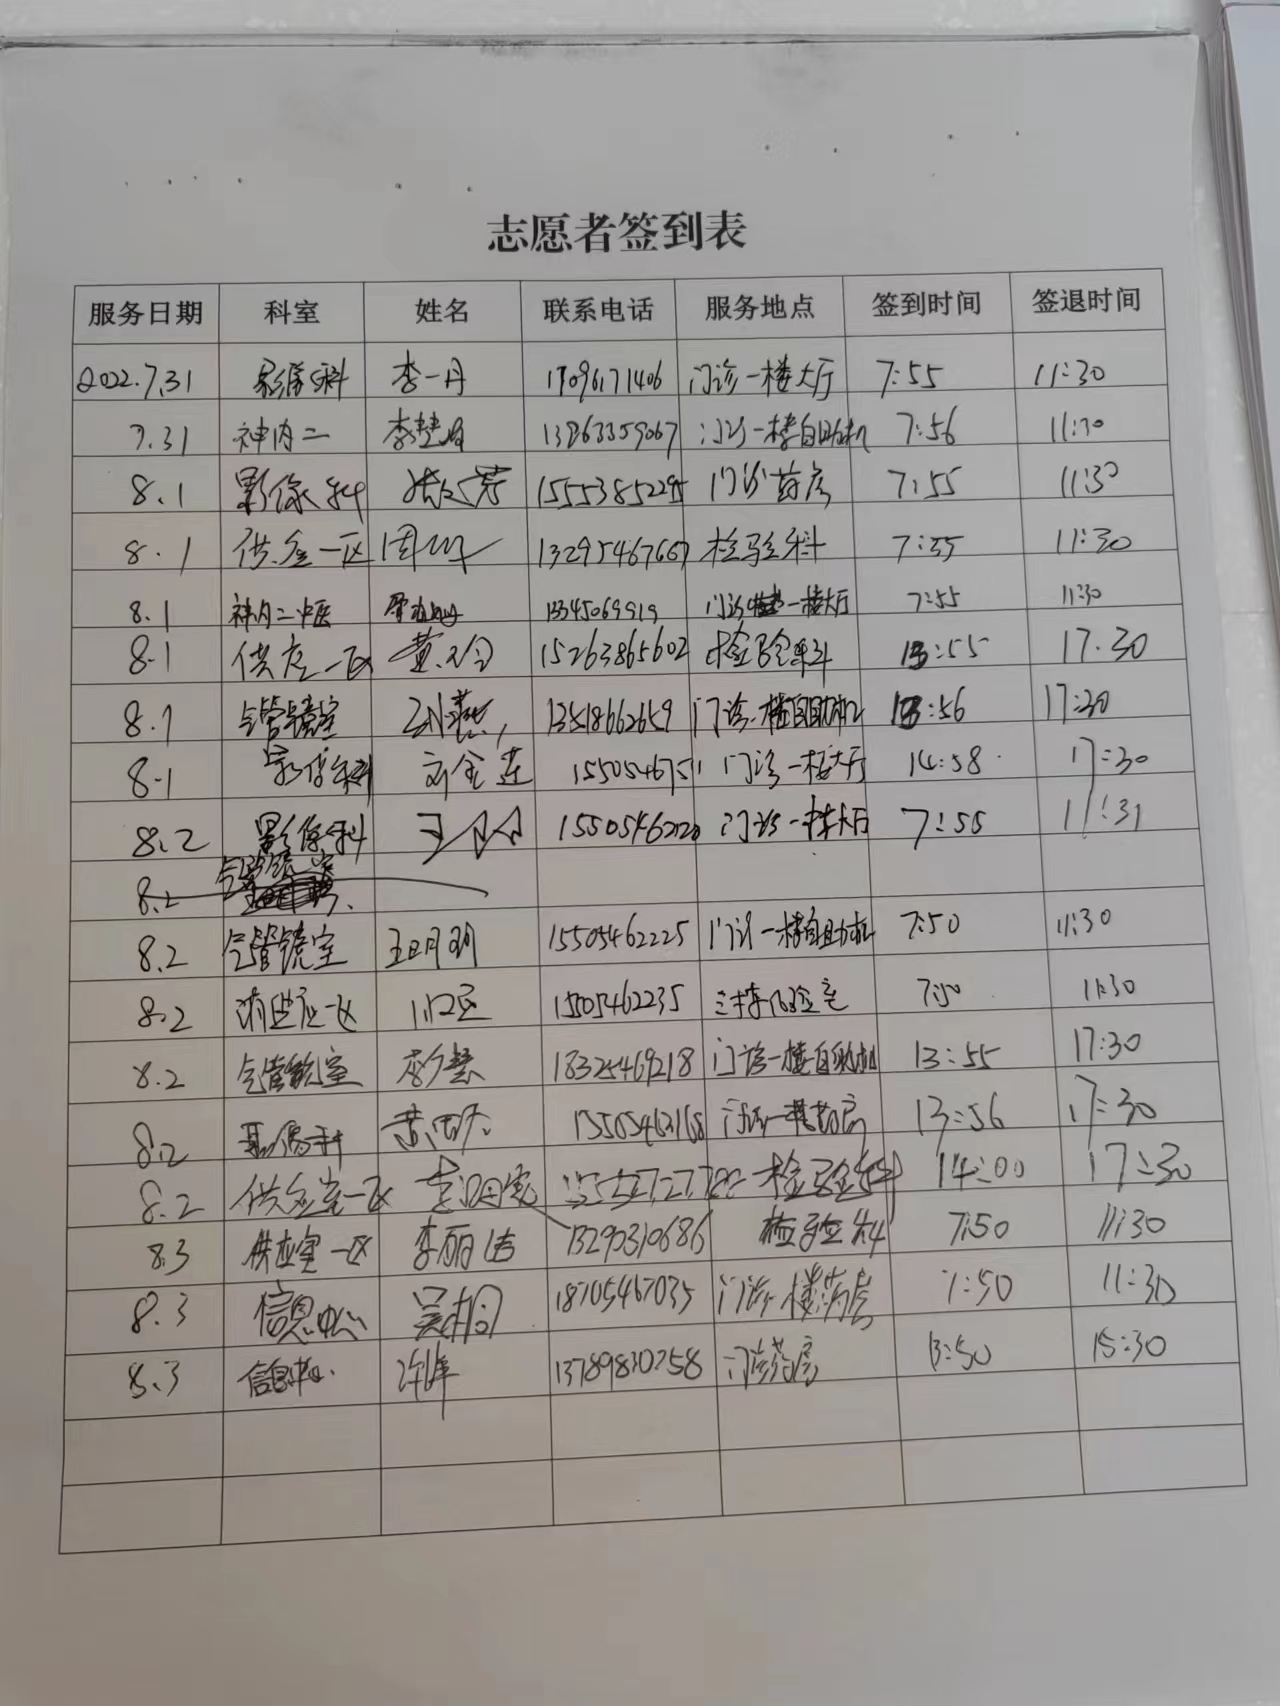 志愿者签到表
服务日期 科室 姓名 联系电话 服务地点 签到时间 签退时间
2022.7.31 影像科 李一丹 17096171406 门诊一楼大厅 7:55 11:30
7.31 神内二 李慧 13863359067 门诊一楼自助机 7:56 11:30
8.1 影像科 芳 15553852295 门诊药房 7:55 11:30
8.1 供应一区 周 13295467667 检验科 7:55 11:30
8.1 神内二中医 13345069919 门诊一楼大厅 7:55 11:30
8.1 供应一区 黄 15263865602 检验科 13:55 17.30
8.1 气管镜室 13518662659 门诊一楼自助机 13:56 17:30
8.1 影像科 刘金莲 1550546751 门诊一楼大厅 14:58 17:30
8.2 影像科 王 15505462220 门诊一楼大厅 7:55 11:31
8.2 气管镜室
8.2 气管镜室 王明明 15505462225 门诊一楼自助机 7:50 11:30
8.2 消供应一区 15505462235 7:50 11:30
8.2 气管镜室 慧 18325469218 门诊一楼自助机 13:55 17:30
8.2 影像科 黄 15505462168 门诊一楼药房 13:56 17:30
8.2 供应室一区 检验科 14:00 17:30
8.3 供应室一区 李丽洁 13290310686 检验科 7:50 11:30
8.3 信息中心 吴桐 18705467035 门诊一楼药房 7:50 11:30
8.3 信息中心 许峰 13789830758 门诊药房 13:50 15:30